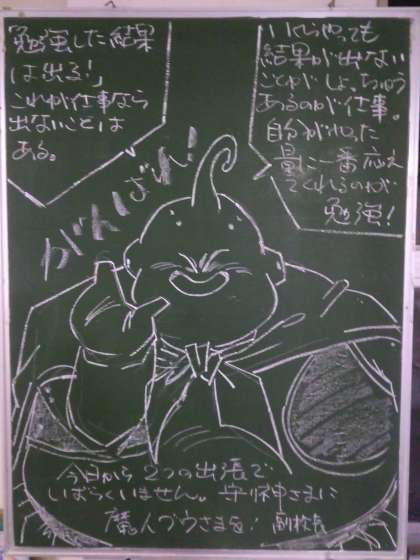 「勉強した結果
は出る!」
これが仕事なら
出ないことは
ある。
いくらやっても
結果が出ない
ことがしょっちゅう
あるのが仕事。
自分がやった
量に一番応え
てくれるのが
勉強!
がんばれ!
今日から2つの出張で
しばらくいません。守神さまに
魔人ブウさまを! 副校長